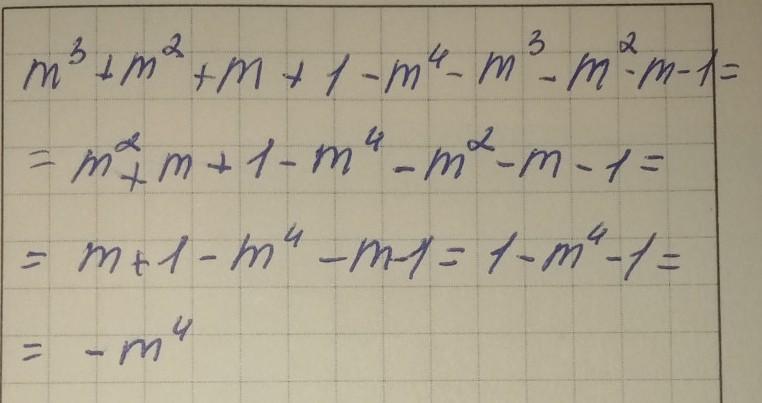 m³ + m² + m + 1 - m⁴ - m³ - m² - m - 1 =
= m² + m + 1 - m⁴ - m² - m - 1 =
= m + 1 - m⁴ - m - 1 = 1 - m⁴ - 1 =
= - m⁴